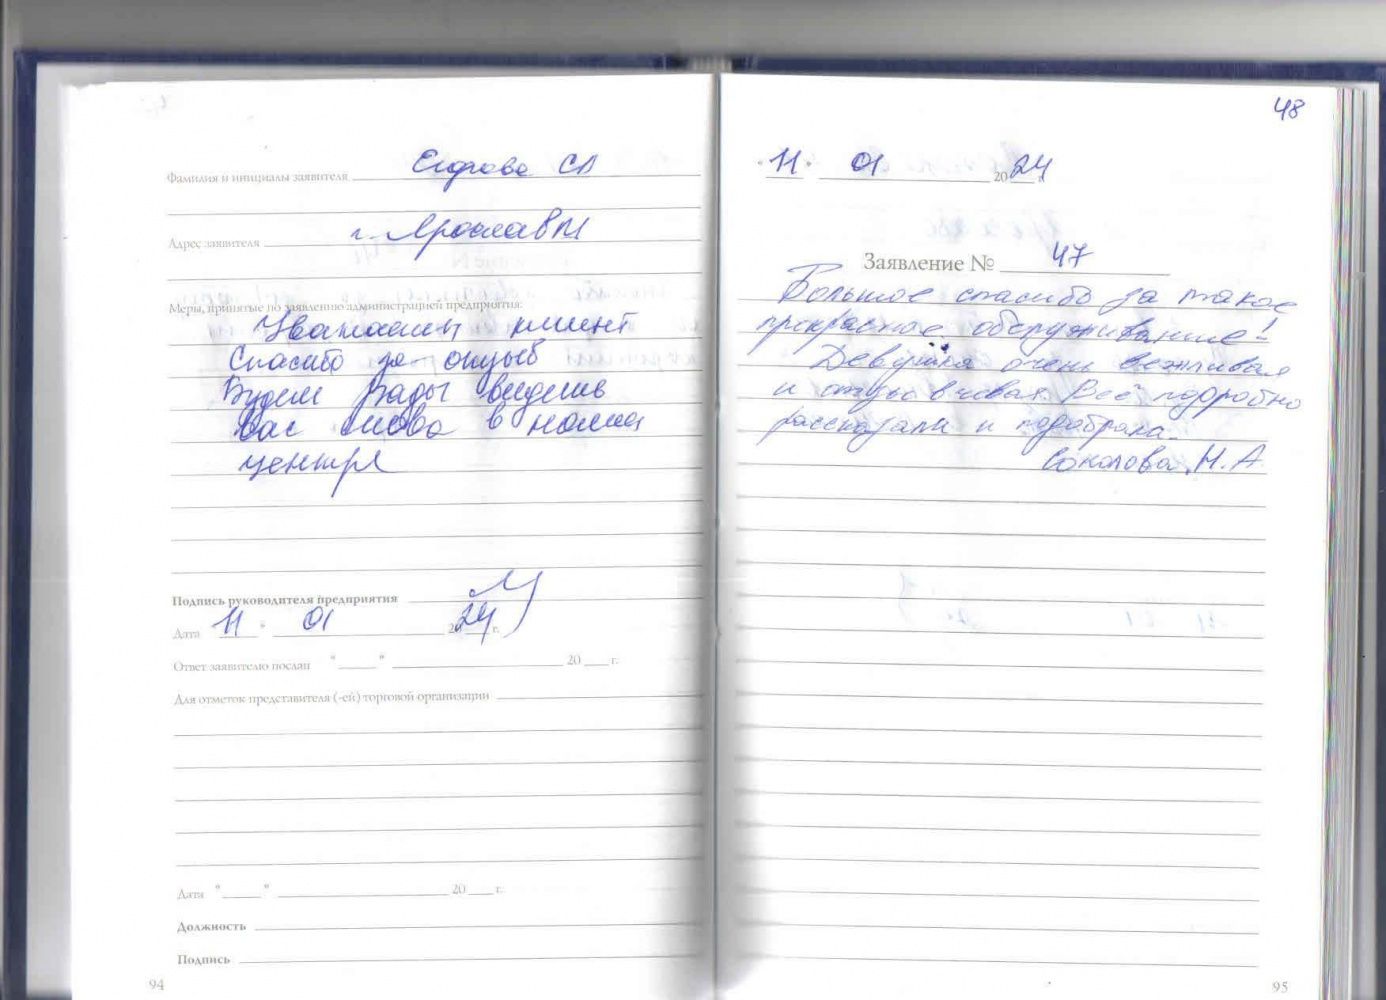 Фамилия и инициалы заявителя Егорова СЛ
Адрес заявителя г. Ярославль
Меры, принятые по заявлению администрацией предприятия:
Уважаемый клиент
Спасибо за отзыв
Будем рады видеть
Вас снова в нашем
центре
Подпись руководителя предприятия
Дата 11 " 01 2024 г.
Ответ заявителю послан "____" ____ 20 ___ г.
Для отметок представителя (-ей) торговой организации
Дата "____" ____ 20 ___ г.
Должность
Подпись
94
48
" 11 " 01 2024 г.
Заявление № 47
Большое спасибо за такое
прекрасное обслуживание!
Девушка очень вежливая
и отзывчевая. Всё подробно
рассказала и подобрала.
Соколова Н.А.
95